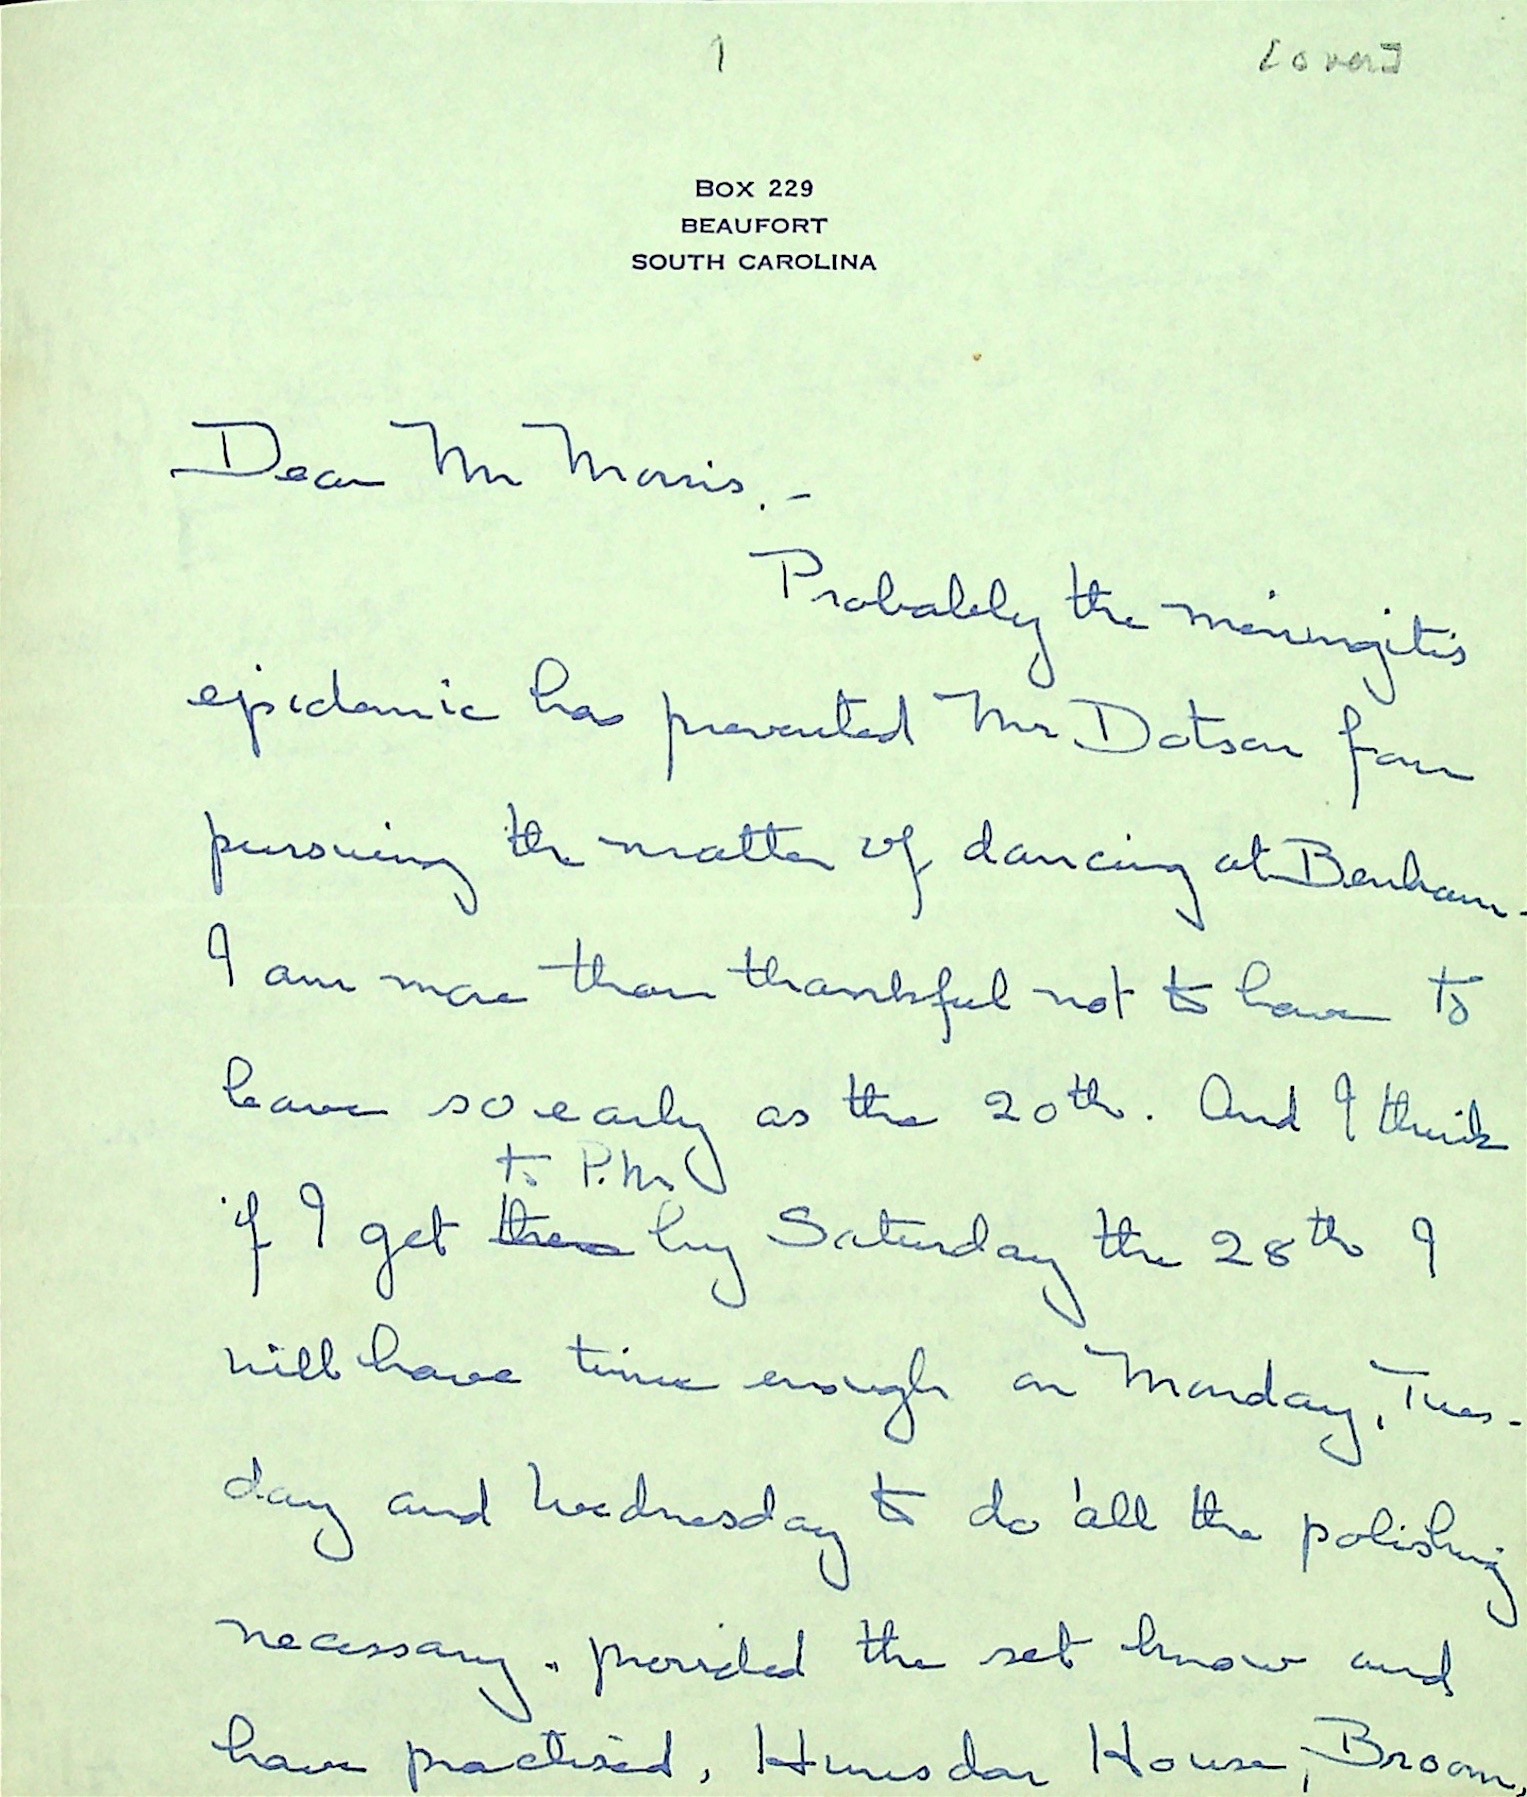 1 [over]
BOX 229
BEAUFORT
SOUTH CAROLINA
Dear Mr Morris. -
Probably the meningitis
epidemic has prevented Mr Dotson from
pursuing the matter of dancing at Benham.
I am more than thankful not to have to
leave so early as the 20th. And I think
to P.M.
if I get there by Saturday the 28th I
will have time enough on Monday, Tues-
day and Wednesday to do all the polishing
necessary. provided the set know and
have practised, Hunsdon House, Broom,